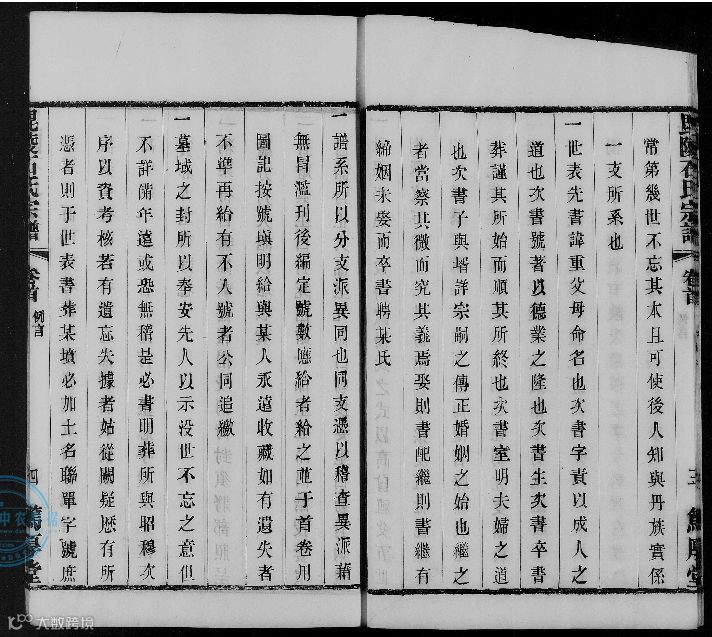 常第幾世不忘其本且可使後人知與丹族實係
一支所系也
一世表先書諱重父母命名也次書字責以成人之
道也次書號著以德業之隆也次書生次書卒書
葬謹其所始而順其所終也次書室明夫婦之道
也次書子與壻詳宗嗣之傳正婚姻之始也繼之
者當察其微而究其義焉娶則書配繼則書繼有
締姻未娶而卒書聘某氏
毘陵石氏宗譜
卷首
三
篤厚堂
一譜系所以分支派異同也同支憑以稽查異派藉
無冒濫刊後編定號數應給者給之並于首卷用
圖記按號塡明給與某人永遠收藏如有遺失者
不準再給有不入號者公同追繳
一墓域之封所以奉安先人以示没世不忘之意世
不詳備年遠或恐無稽是必書明葬所與昭穆次
序以資考核若有遺忘失據者姑從闕疑歷有所
憑者則于世表書葬某墳必加土名聯單字號庶
毘陵石氏宗譜
卷首
例言
四
篤厚堂
大数跨境